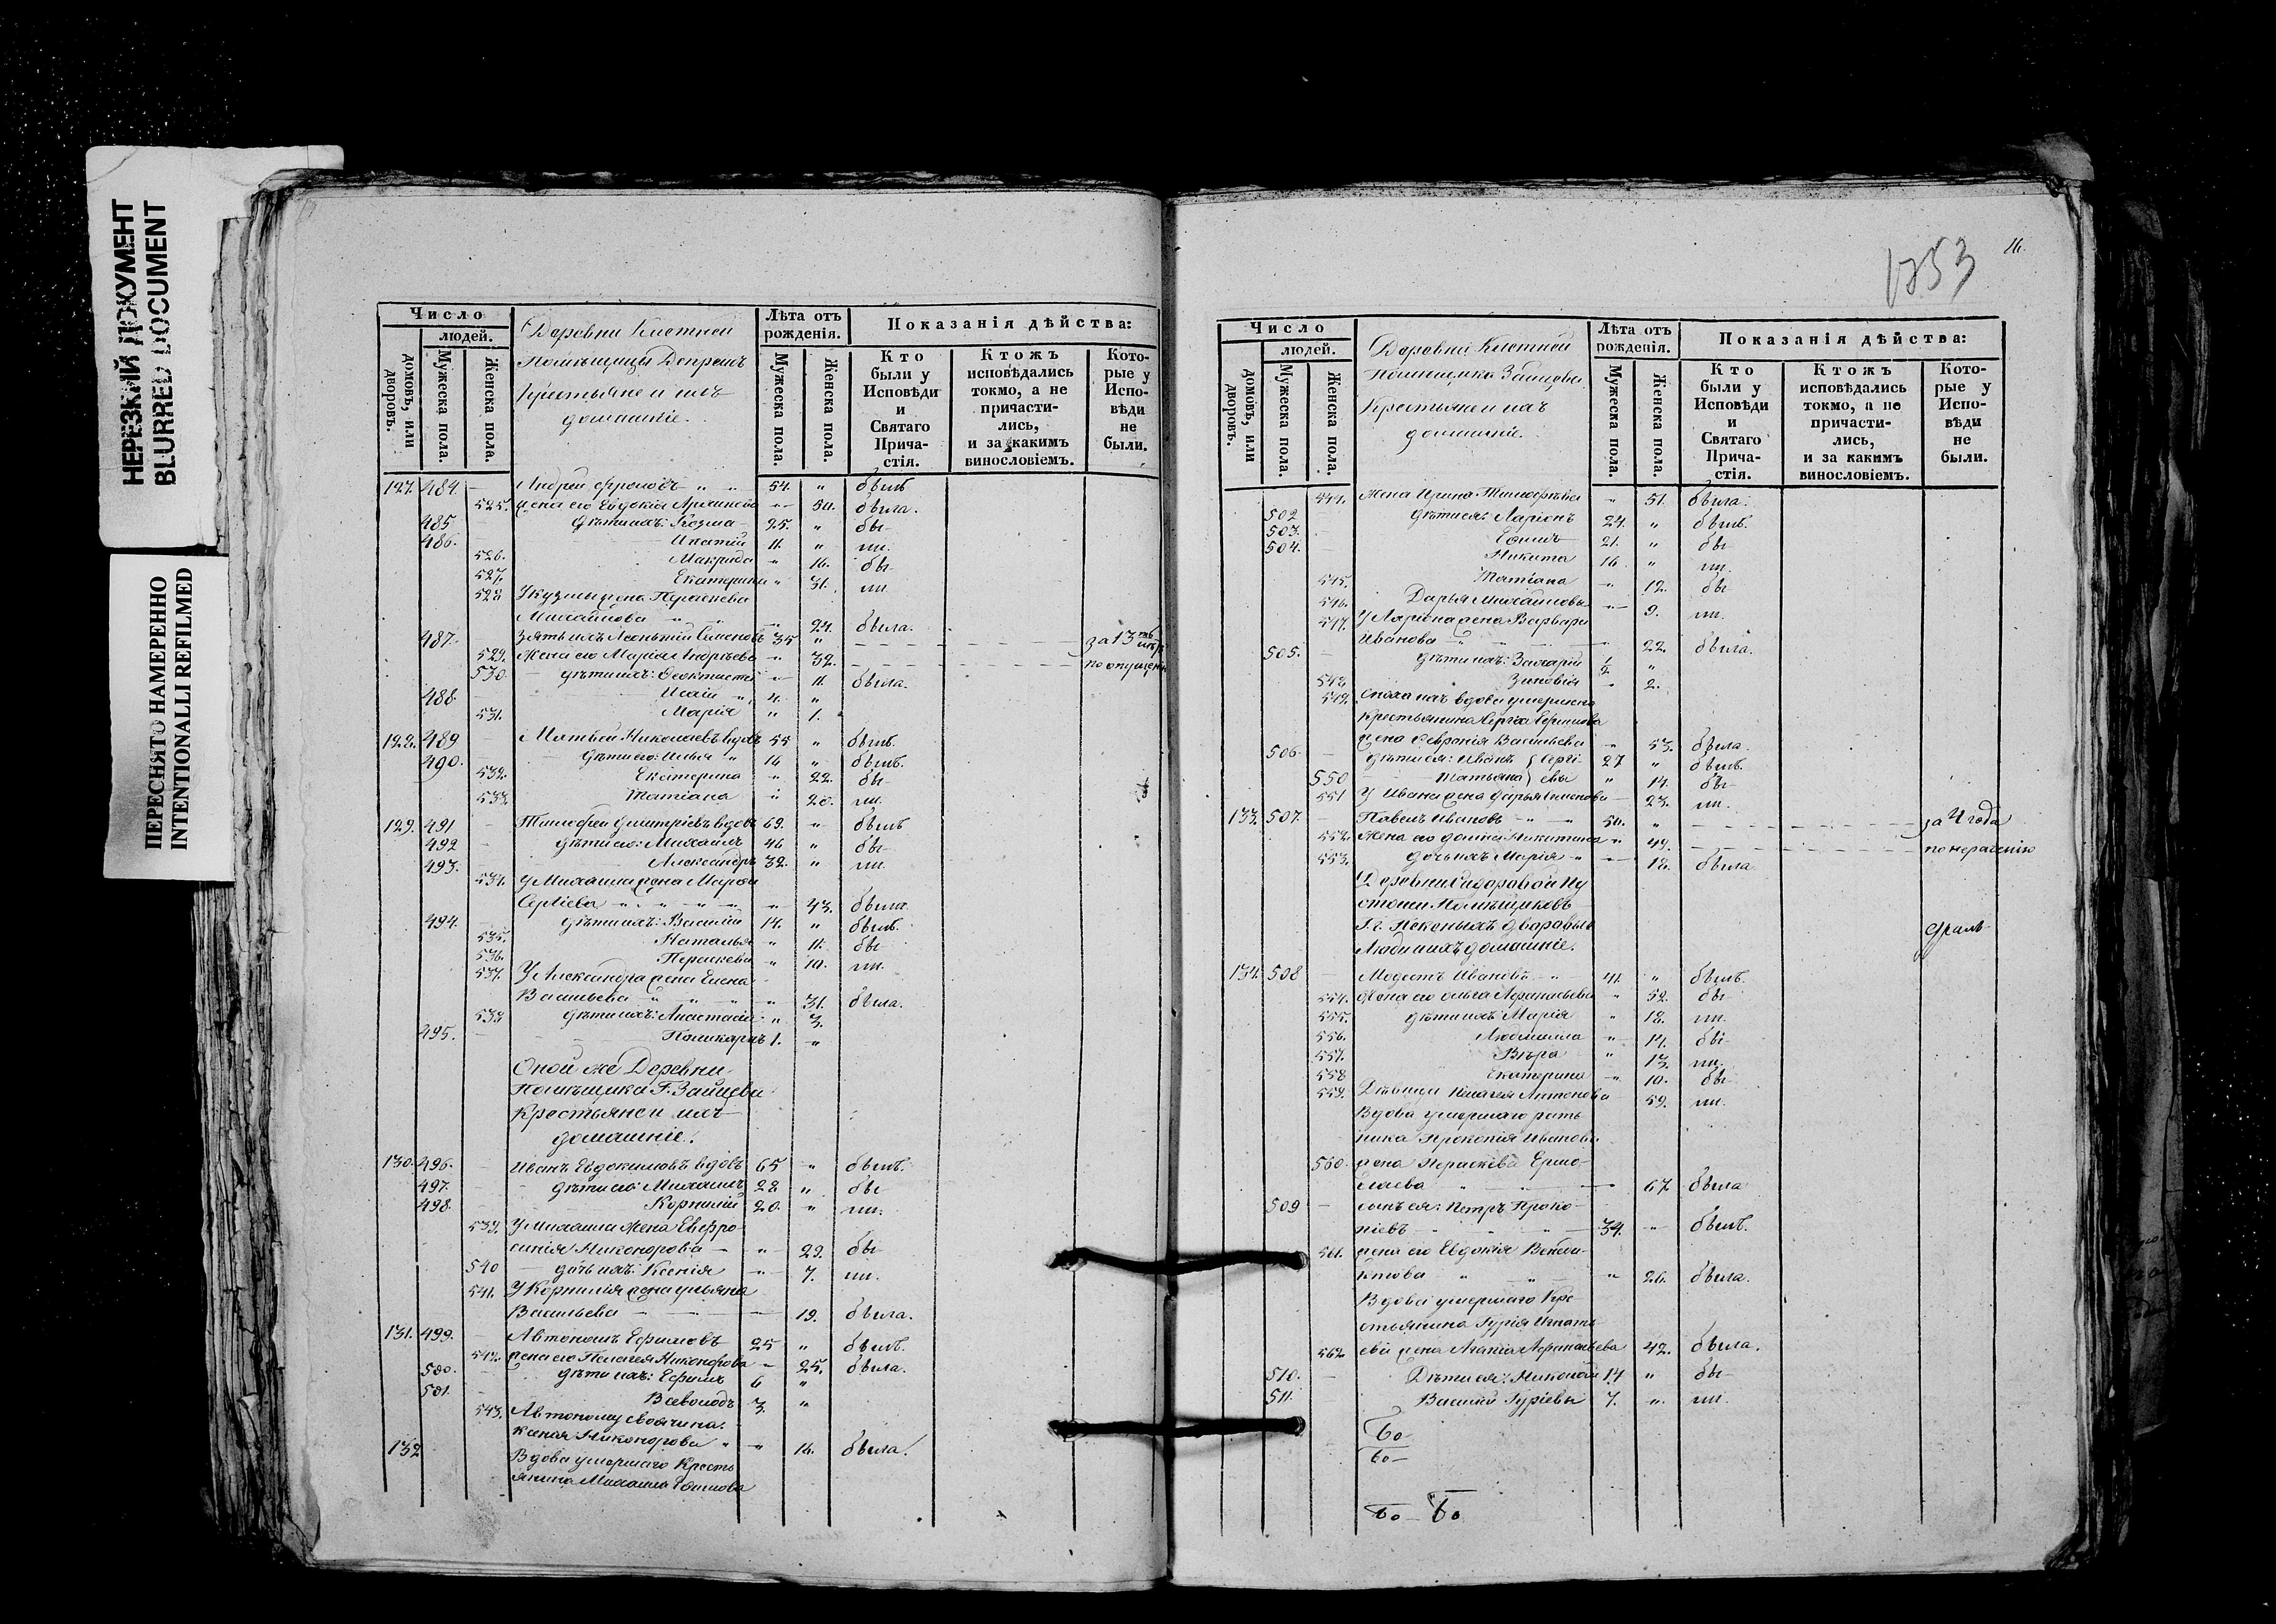 НЕРЕЗКИЙ ДОКУМЕНТ
BLURRED DOCUMENT
ПЕРЕСНЯТО НАМЕРЕННО
INTENTIONALLI REFILMED
Число
людей.
домовъ, или дворовъ.
Мужеска пола.
Женска пола.
Деревни Клетней
Помѣщицы
Крестьяне и ихъ
домашніе.
Лѣта отъ рожденія.
Мужеска пола.
Женска пола.
Показанія дѣйства:
Кто были у Исповѣди и Святаго Причастія.
Ктожъ исповѣдались токмо, а не причастились, и за какимъ винословіемъ.
Которые у Исповѣди не были.
127. 484. — Андрей 54. " былъ
525. жена его Евдокія 50. была.
485 дѣти ихъ: Козма 25. " бы
486. Ипатій 11. " ли.
526. Макрида " 16. бы
527. Екатерина " 31. ли
528 У Кузмы жена Параскева
Михайлова " 24. была.
487. зять ихъ Леонтій Симеоновъ 35 " за 13ть
529. Жена его Марія Андреева " 32. по опущенію
530 дѣти ихъ: Феоктиста — 11. была.
488 Исаія 4. "
531. Марія " 1.
128. 489 — Николаевъ вдовъ 55 " былъ.
490. дѣти его: Илья " 16 " былъ.
532. Екатерина " 22. бы
533 Татіана " 20. ли.
129. 491 — Тимофей Димитріевъ вдовъ 69. " былъ
492 дѣти его: Михаилъ 46 " бы
493. Александръ 32. " ли
534. У Михаила жена Марфа
Сергіева " 43. была.
494. дѣти ихъ: Василій 14. " былъ.
535. Наталья " 11. бы
536. Параскева " 10. ли.
537. У Александра жена Елена
Васильева " 31. была.
538 дѣти ихъ: Анастасія " 3.
495. Поликарпъ 1. "
Оной же Деревни
Помѣщика Г. Зайцева
Крестьяне и ихъ
домашніе.
130. 496. — Иванъ Евдокимовъ вдовъ 65 " былъ.
497. дѣти его: Михаилъ 28 " бы
498. Корнилій 20. " ли.
539. У Михаила жена Евфро
синія Никонорова — " 29. бы
540 дочь ихъ: Ксенія " 7. ли.
541. У Корнилія жена Ульяна
Васильева — 19. была.
131. 499. — Автономъ Ефимовъ 25 " былъ.
542. жена его Пелагея Никонорова — 25. была.
500. дѣти ихъ: Ефимъ 6 "
501. Всеволодъ 3. "
543. Автоному своячина
Ксенія Никонорова " 16. была.
132 Вдова умершаго Кресть
янина Михаила Ефимова
1253
26.
Число
людей.
домовъ, или дворовъ.
Мужеска пола.
Женска пола.
Деревни Клетней
Помѣщика Зайцова
Крестьяне и ихъ
домашніе.
Лѣта отъ рожденія.
Мужеска пола.
Женска пола.
Показанія дѣйства:
Кто были у Исповѣди и Святаго Причастія.
Ктожъ исповѣдались токмо, а не причастились, и за какимъ винословіемъ.
Которые у Исповѣди не были.
544. жена Ирина Тимофѣева " 51. была.
502 дѣти ея: Ларіонъ 24. " былъ.
503. Ефимъ 21. " бы
504. Никита 16 " ли.
545. Татіана " 12. бы
546. Дарья Михайлова — 9. ли.
547. У Ларіона жена Варвара
Иванова " 22. была.
505. — дѣти ихъ: Захарій 1/2 "
548 Зиновія — 2.
549. Сноха ихъ вдова умершаго
Крестьянина Сергія Ефимова
жена Февронія Васильева " 53. была.
506 — дѣти ея: Иванъ Сергі- 27 " былъ.
550 Татьяна евы " 14. бы
551 У Ивана жена Дарья Семенова — 23. ли.
133. 507. — Павелъ Ивановъ 50. " за 4 года
552. Жена его Никитина " 49. по нераченію
553. дочь ихъ Марія " — 18. была
Деревни Сидоровой Пу
стоши Помѣщиковъ
Г.г. дворовые
Люди и ихъ домашніе.
134. 508 — Модестъ Ивановъ — 41. " былъ.
554. Жена его Ольга Афанасьева " 52. бы
555. дѣти ихъ: Марія " 18. ли.
556. Людмилла " 14. бы
557. Вѣра " 13. ли.
558 Екатерина — 10. бы
559. Дѣвица Пелагея Антонова 59. ли.
Вдова умершаго рат
ника Прокопія Иванова
560. жена Параскева Ермо-
лаева " 67 была
509 — сынъ ея: Петръ Проко-
піевъ 34. " былъ.
561. жена его Евдокія Венеди-
ктова " 26. была.
Вдова умершаго Кре
стьянина Гурія Игнать
562 ева жена Агапія Афанасьева 42. была.
510. — Дѣти ея: Николай 14 " бы
511. Василій Гуріевы 7. " ли.